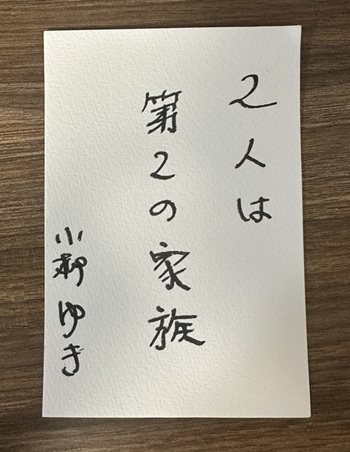 2人は
第2の家族
小柳ゆき